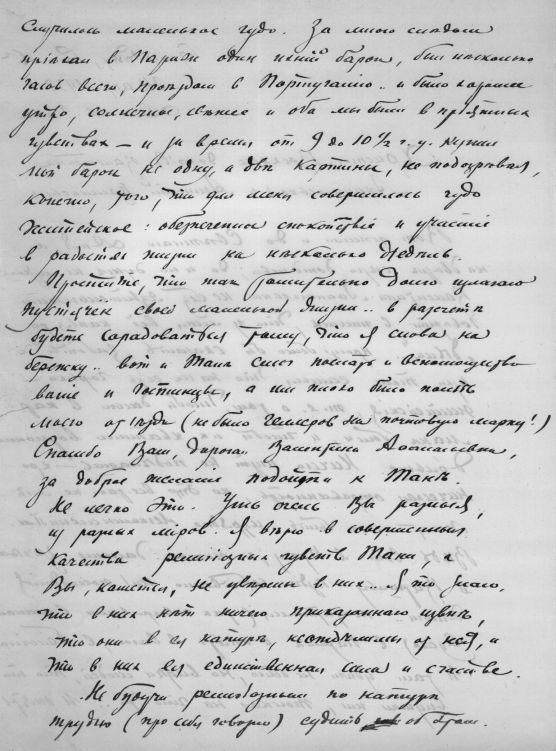 Случилось маленькое чудо. За мною следом
пріѣхал в Париж один нѣкій барон, был нѣсколько
часов всего, проѣздом в Португалію.. и было хорошее
утро, солнечное, и оба мы были в пріятных
чувствах — и за время от 9 до 10½ г. у. купил
мой барон не одну, а двѣ картины, не подозрѣвая,
конечно, того, что для меня совершилось чудо
житейское: обезпеченное спокойствіе и участіе
в радостях жизни на нѣсколько недѣль.
Простите, что так долго излагаю
пустячек своей маленькой жизни.. в разсчетѣ
будете сорадоваться тому, что я снова на
бережку.. вот и Таня смог послать и
ваше и гостинцы, а им плохо было послѣ
моего отъѣзда (не было геллеров на почтовую марку!)
Спасибо Вам, дорогая Валентина Афанасьевна,
за доброе желаніе подойти к Танѣ.
Не легко это. Ужь очень Вы разныя,
из разных міров. Я вѣрю в совершенныя
качества религіозных чувств Тани, а
Вы, кажется, не увѣрены в них.. Я то знаю,
что в них нѣт ничего приказаннаго извнѣ,
что они в ея натурѣ, неотдѣлимы от нея, и
что в них ея единственная сила и счастье.
Не будучи религіозным по натурѣ
трудно (про себя говорю) судить об этом.